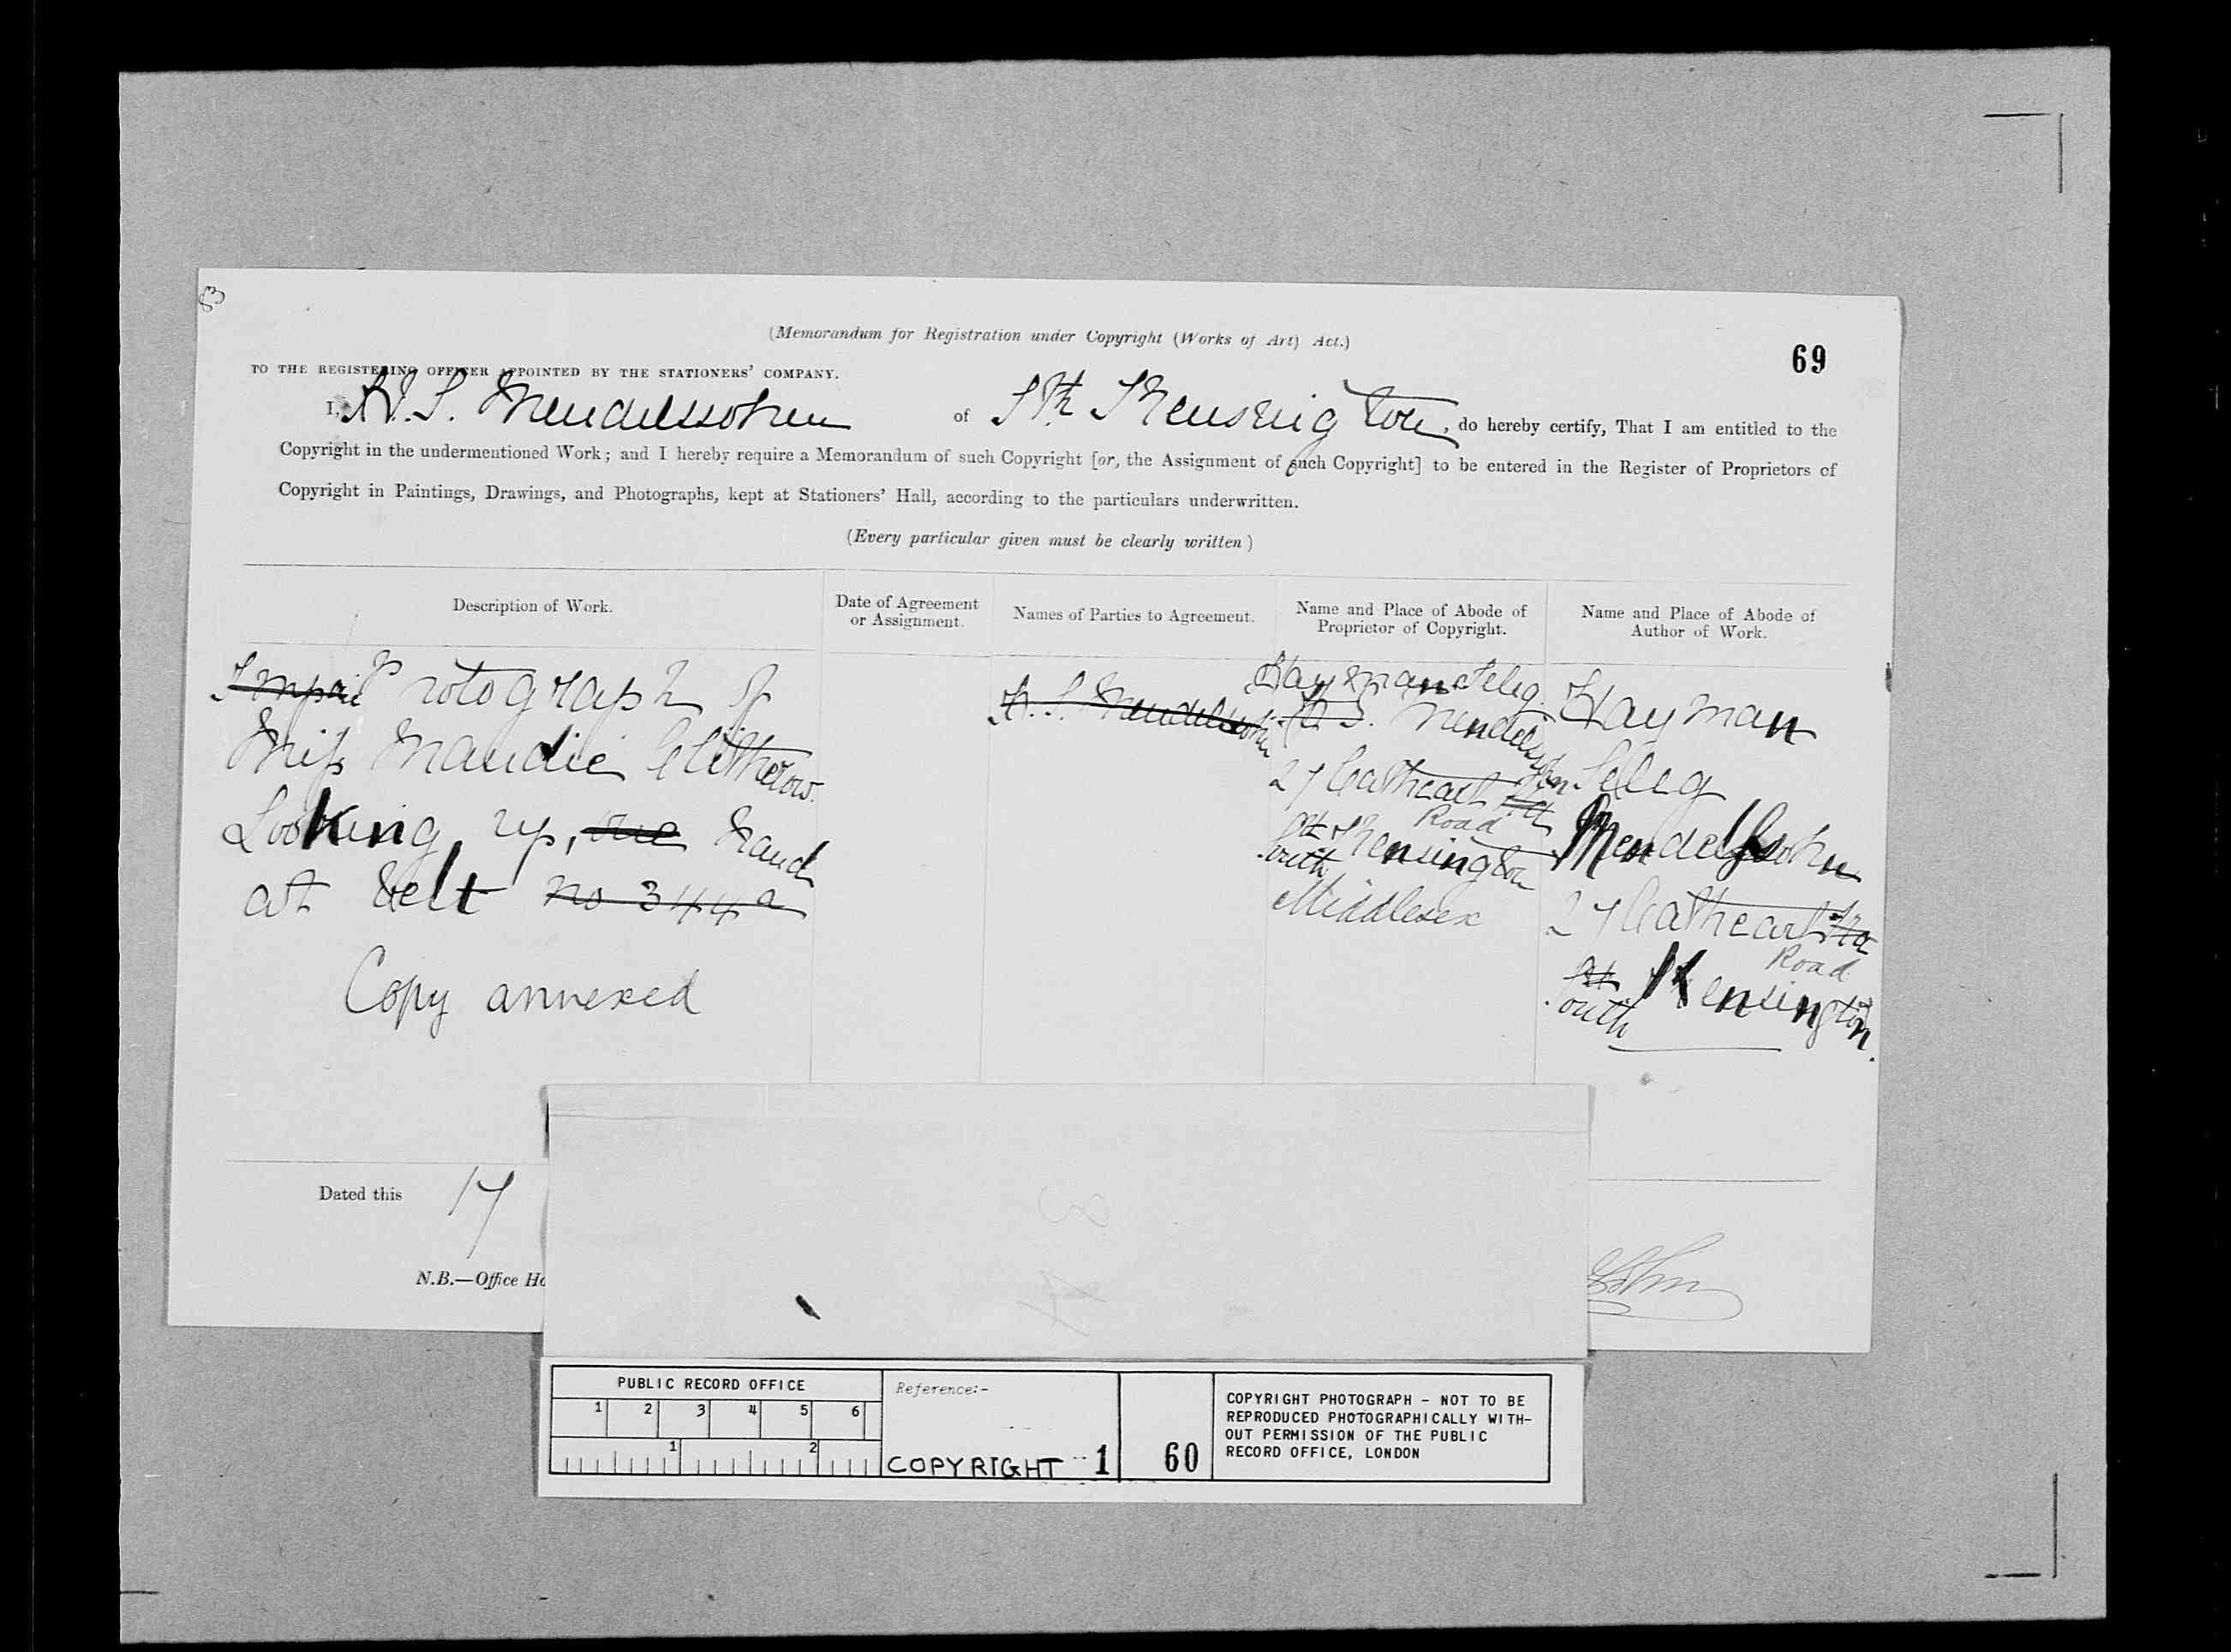 (Memorandum for Registration under Copyright (Works of Art) Act.)
69
TO THE REGISTERING OFFICER APPOINTED BY THE STATIONERS' COMPANY.
I, H. S. Mendelssohn of Sth Kensington, do hereby certify, That I am entitled to the
Copyright in the undermentioned Work; and I hereby require a Memorandum of such Copyright [or, the Assignment of such Copyright] to be entered in the Register of Proprietors of
Copyright in Paintings, Drawings, and Photographs, kept at Stationers' Hall, according to the particulars underwritten.
(Every particular given must be clearly written)
Description of Work.
Date of Agreement
or Assignment.
Names of Parties to Agreement.
Name and Place of Abode of
Proprietor of Copyright.
Name and Place of Abode of
Author of Work.
Photograph of
Miss Maudie Clitherow.
Looking up, one hand
at belt no 344a
Copy annexed
H. S. Mendelssohn
Hayman Seleg
H S. Mendelssohn
27 Cathcart
Road
South Kensington
Middlesex
Hayman
Seleg
Mendelssohn
27 Cathcart
Road
South Kensington.
Dated this 17
N.B.—Office Ho
PUBLIC RECORD OFFICE
1 2 3 4 5 6
1 2
Reference:-
COPYRIGHT 1
60
COPYRIGHT PHOTOGRAPH - NOT TO BE
REPRODUCED PHOTOGRAPHICALLY WITH-
OUT PERMISSION OF THE PUBLIC
RECORD OFFICE, LONDON